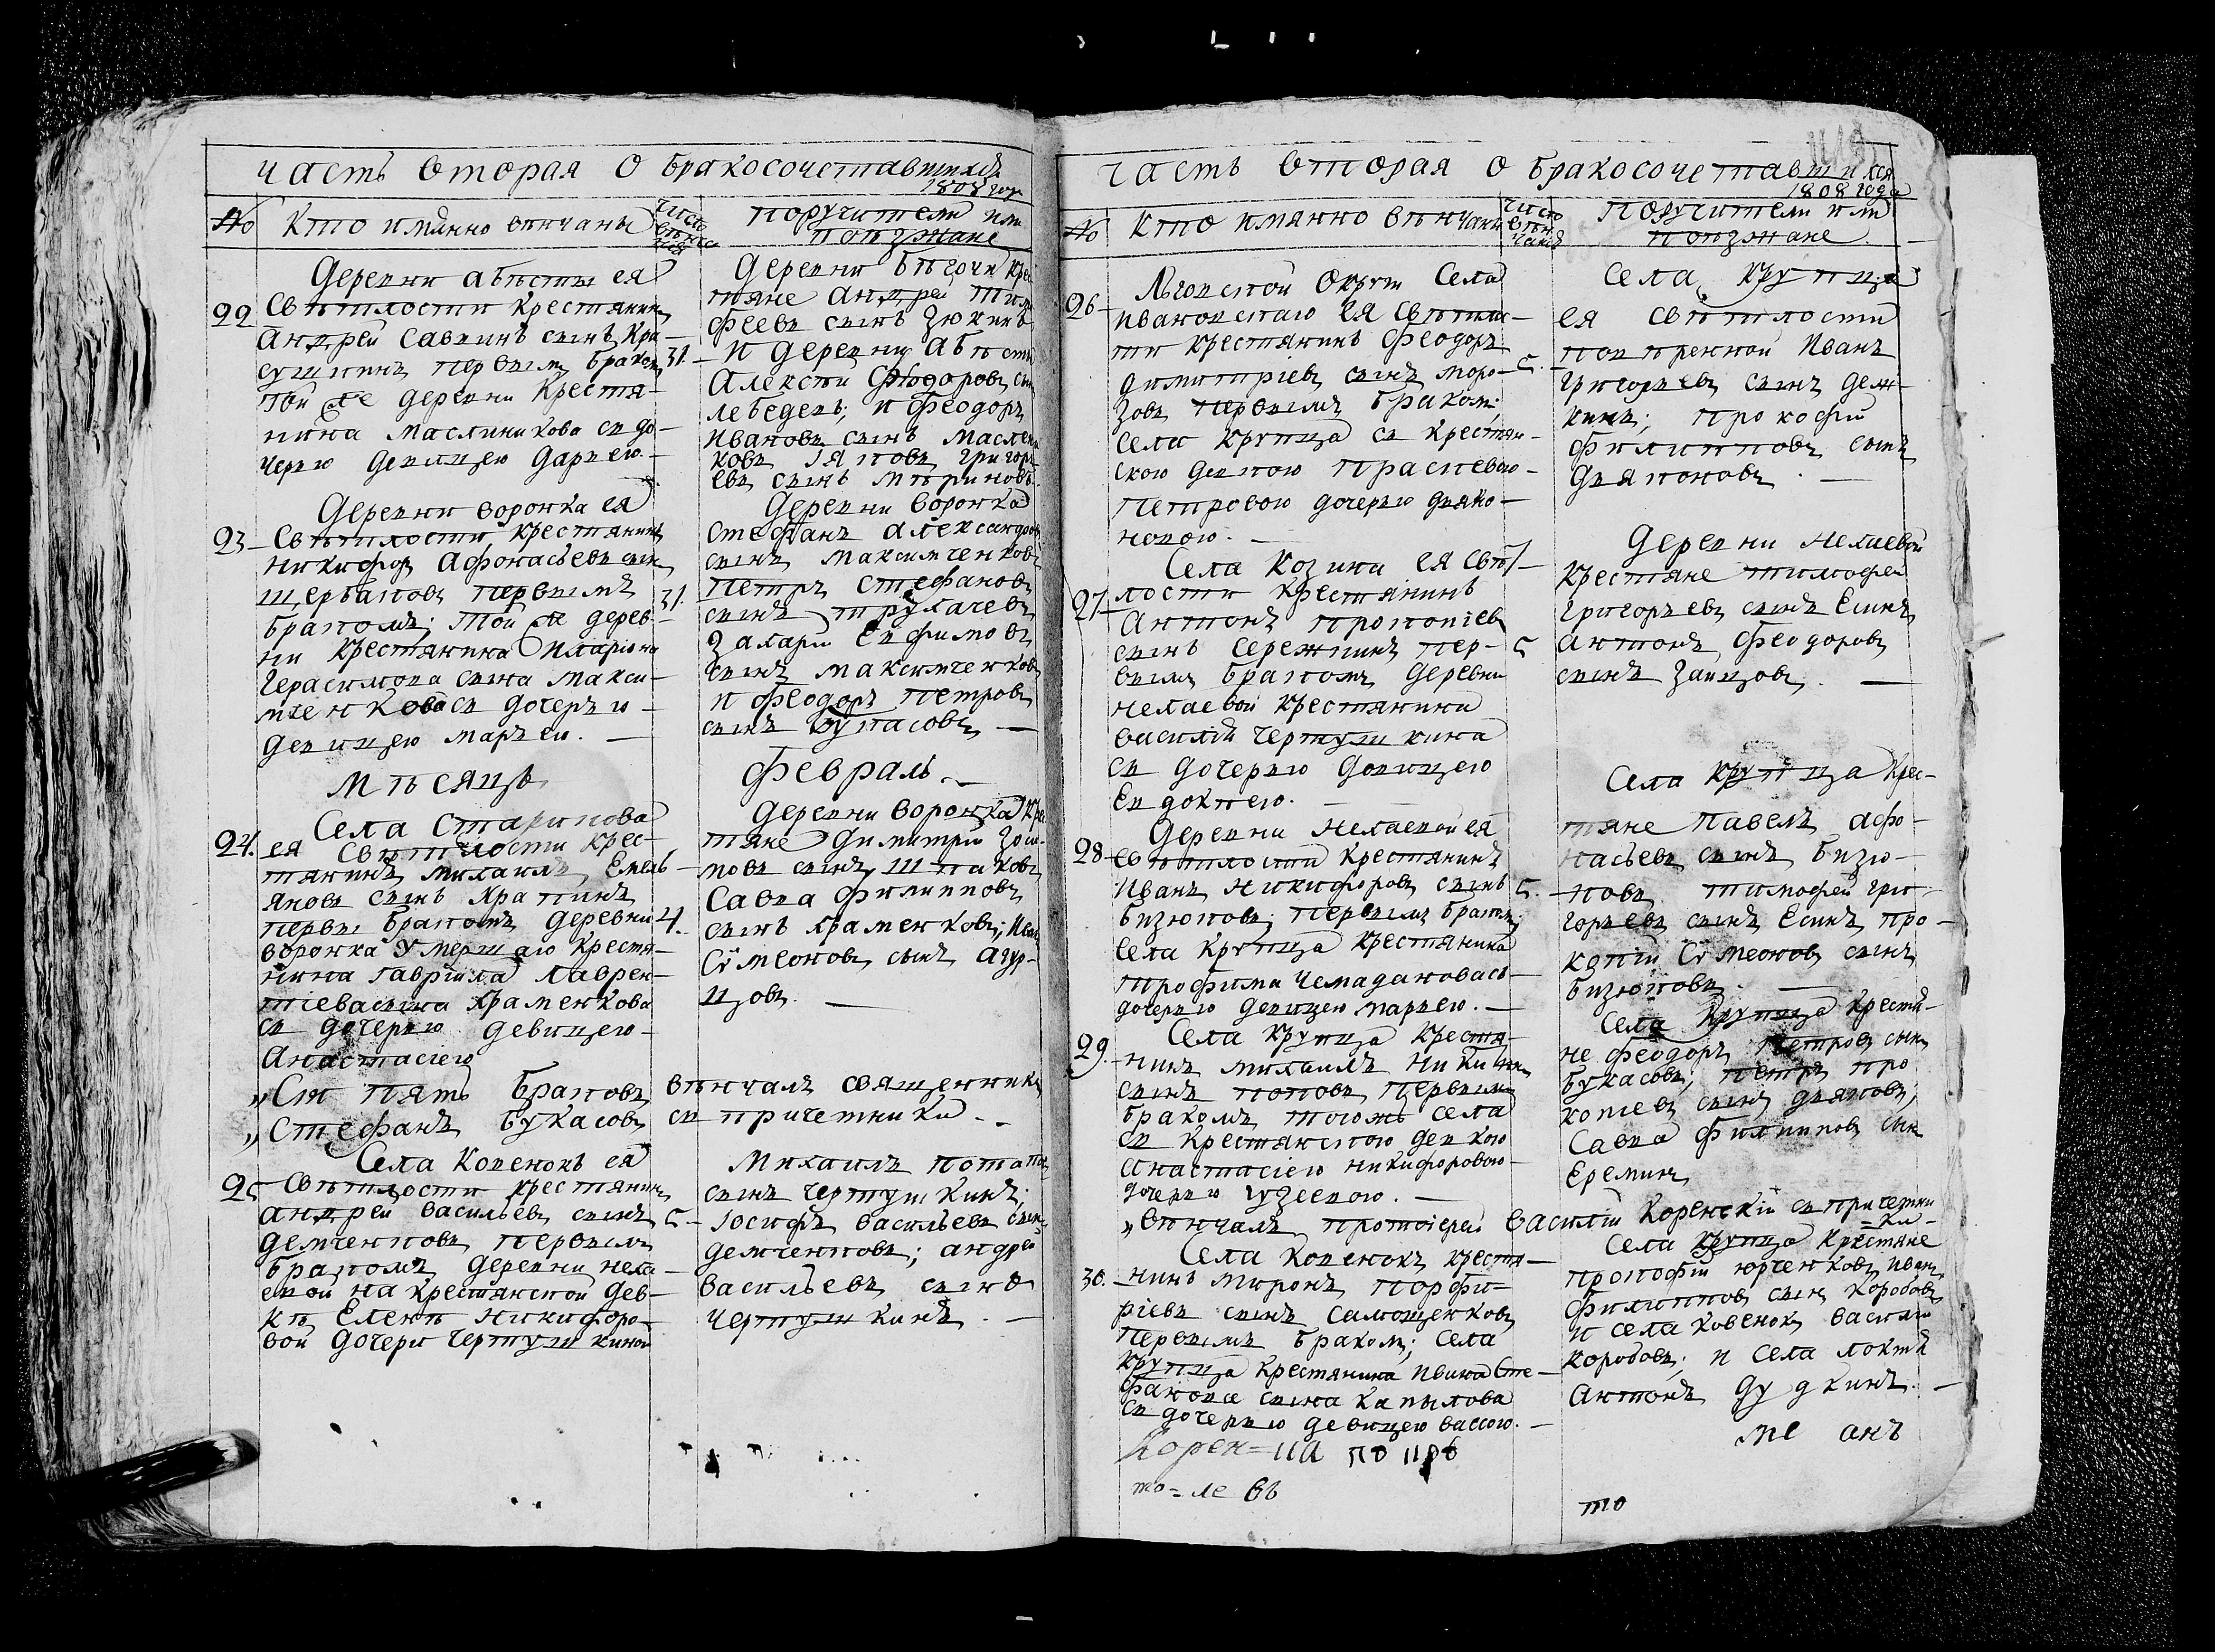 часть вторая о бракосочетавшихся
1808 году
№ Кто имянно венчаны число венчания поручители или поѣзжане
Деревни абѣсты ея
22 Свѣтлости крестянинъ
андрей Саввинъ сынъ Кра-
сушкинъ первымъ бракомъ 31.
той же деревни Крестя-
нина масленикова съ до-
черью девицею дарьею.
Деревни бѣгочи кре
тяне андрей тим
феевъ сынъ Зюкинъ
и деревни абѣсты
алексѣй Феодоровъ сы
лебедевъ; и феодоръ
ивановъ сынъ маслени
ковъ Iяковъ григорь
евъ сынъ мѣриновъ.
Деревни воронка ея
23 Свѣтлости крестянинъ
никифоръ афонасьевъ сынъ
щербаковъ первымъ 31.
бракомъ; той же дерев-
ни Крестянина Иларiона
герасимова сына макси-
мченкова съ дочерью
девицею марьею.
Деревни воронка
стефанъ александровъ
сынъ максимченковъ
петръ стефановъ
сынъ трухачевъ
захарiй Ефимовъ
сынъ максимченковъ
и феодоръ петровъ
сынъ букасовъ
мѣсяцъ февраль
Села старикова
24. ея свѣтлости крес-
тянинъ михаилъ Емель-
яновъ сынъ храпинъ
первы бракомъ деревни 4.
воронка умершаго крестя-
нина гаврiила лаврен-
тiева сына храменкова
съ дочерью девицею
анастасiею
Деревни воронка кре
тяне димитрiй зоси-
мовъ сынъ шпаковъ
савва филипповъ
сынъ храменковъ; иван
Сѵмеоновъ сынъ агур-
цовъ.
„Сiи пять браковъ вѣнчалъ священникъ
„Стефанъ букасовъ съ причетники
Села Ковенокъ ея
25 Свѣтлости крестянинъ
андрей васильевъ сынъ 5.
демченковъ первымъ
бракомъ деревни неха-
евой на крестянской дев-
кѣ Еленѣ никифоро-
вой дочери чертушкиной
михаилъ потапов
сынъ чертушкинъ;
Iосифъ васильевъ сынъ
демченковъ; андрей
васильевъ сынъ
чертушкинъ.
часть вторая о бракосочетавшихся
1808 года
№ Кто имянно вѣнчаны число вѣнчанiя поручители или поѣзжане
Льговской округи Села
26 ивановскаго ея свѣтлос-
ти крестянинъ феодоръ
димитрiевъ сынъ моро- 5.
зовъ первымъ бракомъ;
села крупца съ крестян-
скою девкою прасковею
петровою дочерью дьяко-
новою.
Села крупца
ея свѣтлости
повѣренной иванъ
григорьевъ сынъ дем-
кинъ; прокофiй
филипповъ сынъ
дьяконовъ.
Села козина ея свѣт-
27 лости крестянинъ
антонъ прокопiевъ
сынъ сережкинъ пер- 5
вымъ бракомъ деревни
нехаевой крестянина
василiя чертушкина
съ дочерью девицею
Евдокiею.
Деревни нехаевой
крестяне тимофей
григорьевъ сынъ Есинъ
антонъ феодоровъ
сынъ заицовъ.
Деревни нехаевой ея
28 свѣтлости крестянинъ
иванъ никифоровъ сынъ 5.
бизюковъ; первымъ бракомъ;
села крупца крестянина
трофима чемаданова съ
дочерью девицею марьею.
Села крупца крес-
тяне павелъ афо-
насьевъ сынъ бизю-
ковъ тимофей гри
горьевъ сынъ Есинъ про-
копiй Сѵмеоновъ сынъ
бизюковъ.
Села крупца крестя-
29. нинъ михаилъ никитинъ
сынъ поповъ первымъ
бракомъ тогожъ села
съ крестянскою девкою
анастасiею никифоровою
дочерью гузеевою.
Села крупца крестя-
не феодоръ петровъ сынъ
букасовъ, петръ про
копiевъ сынъ дьяковъ,
савва филипповъ сын
Ереминъ
„вѣнчалъ протоiерей василiй Коренскiй съ причетни
=ки-
Села ковенокъ крестя-
30. нинъ миронъ порфи-
рiевъ сынъ самощенковъ
первымъ бракомъ; села
крупца крестянина ивана сте-
фанова сына капылова
съ дочерью девицею вассою.
Села крупца крестяне
прокофiй юрченковъ иванъ
филипповъ сынъ коробовъ
и села ковенокъ василiй
коробовъ; и села локтя
антонъ дудкинъ.
Корен=
то=ле въ
ме анъ
то